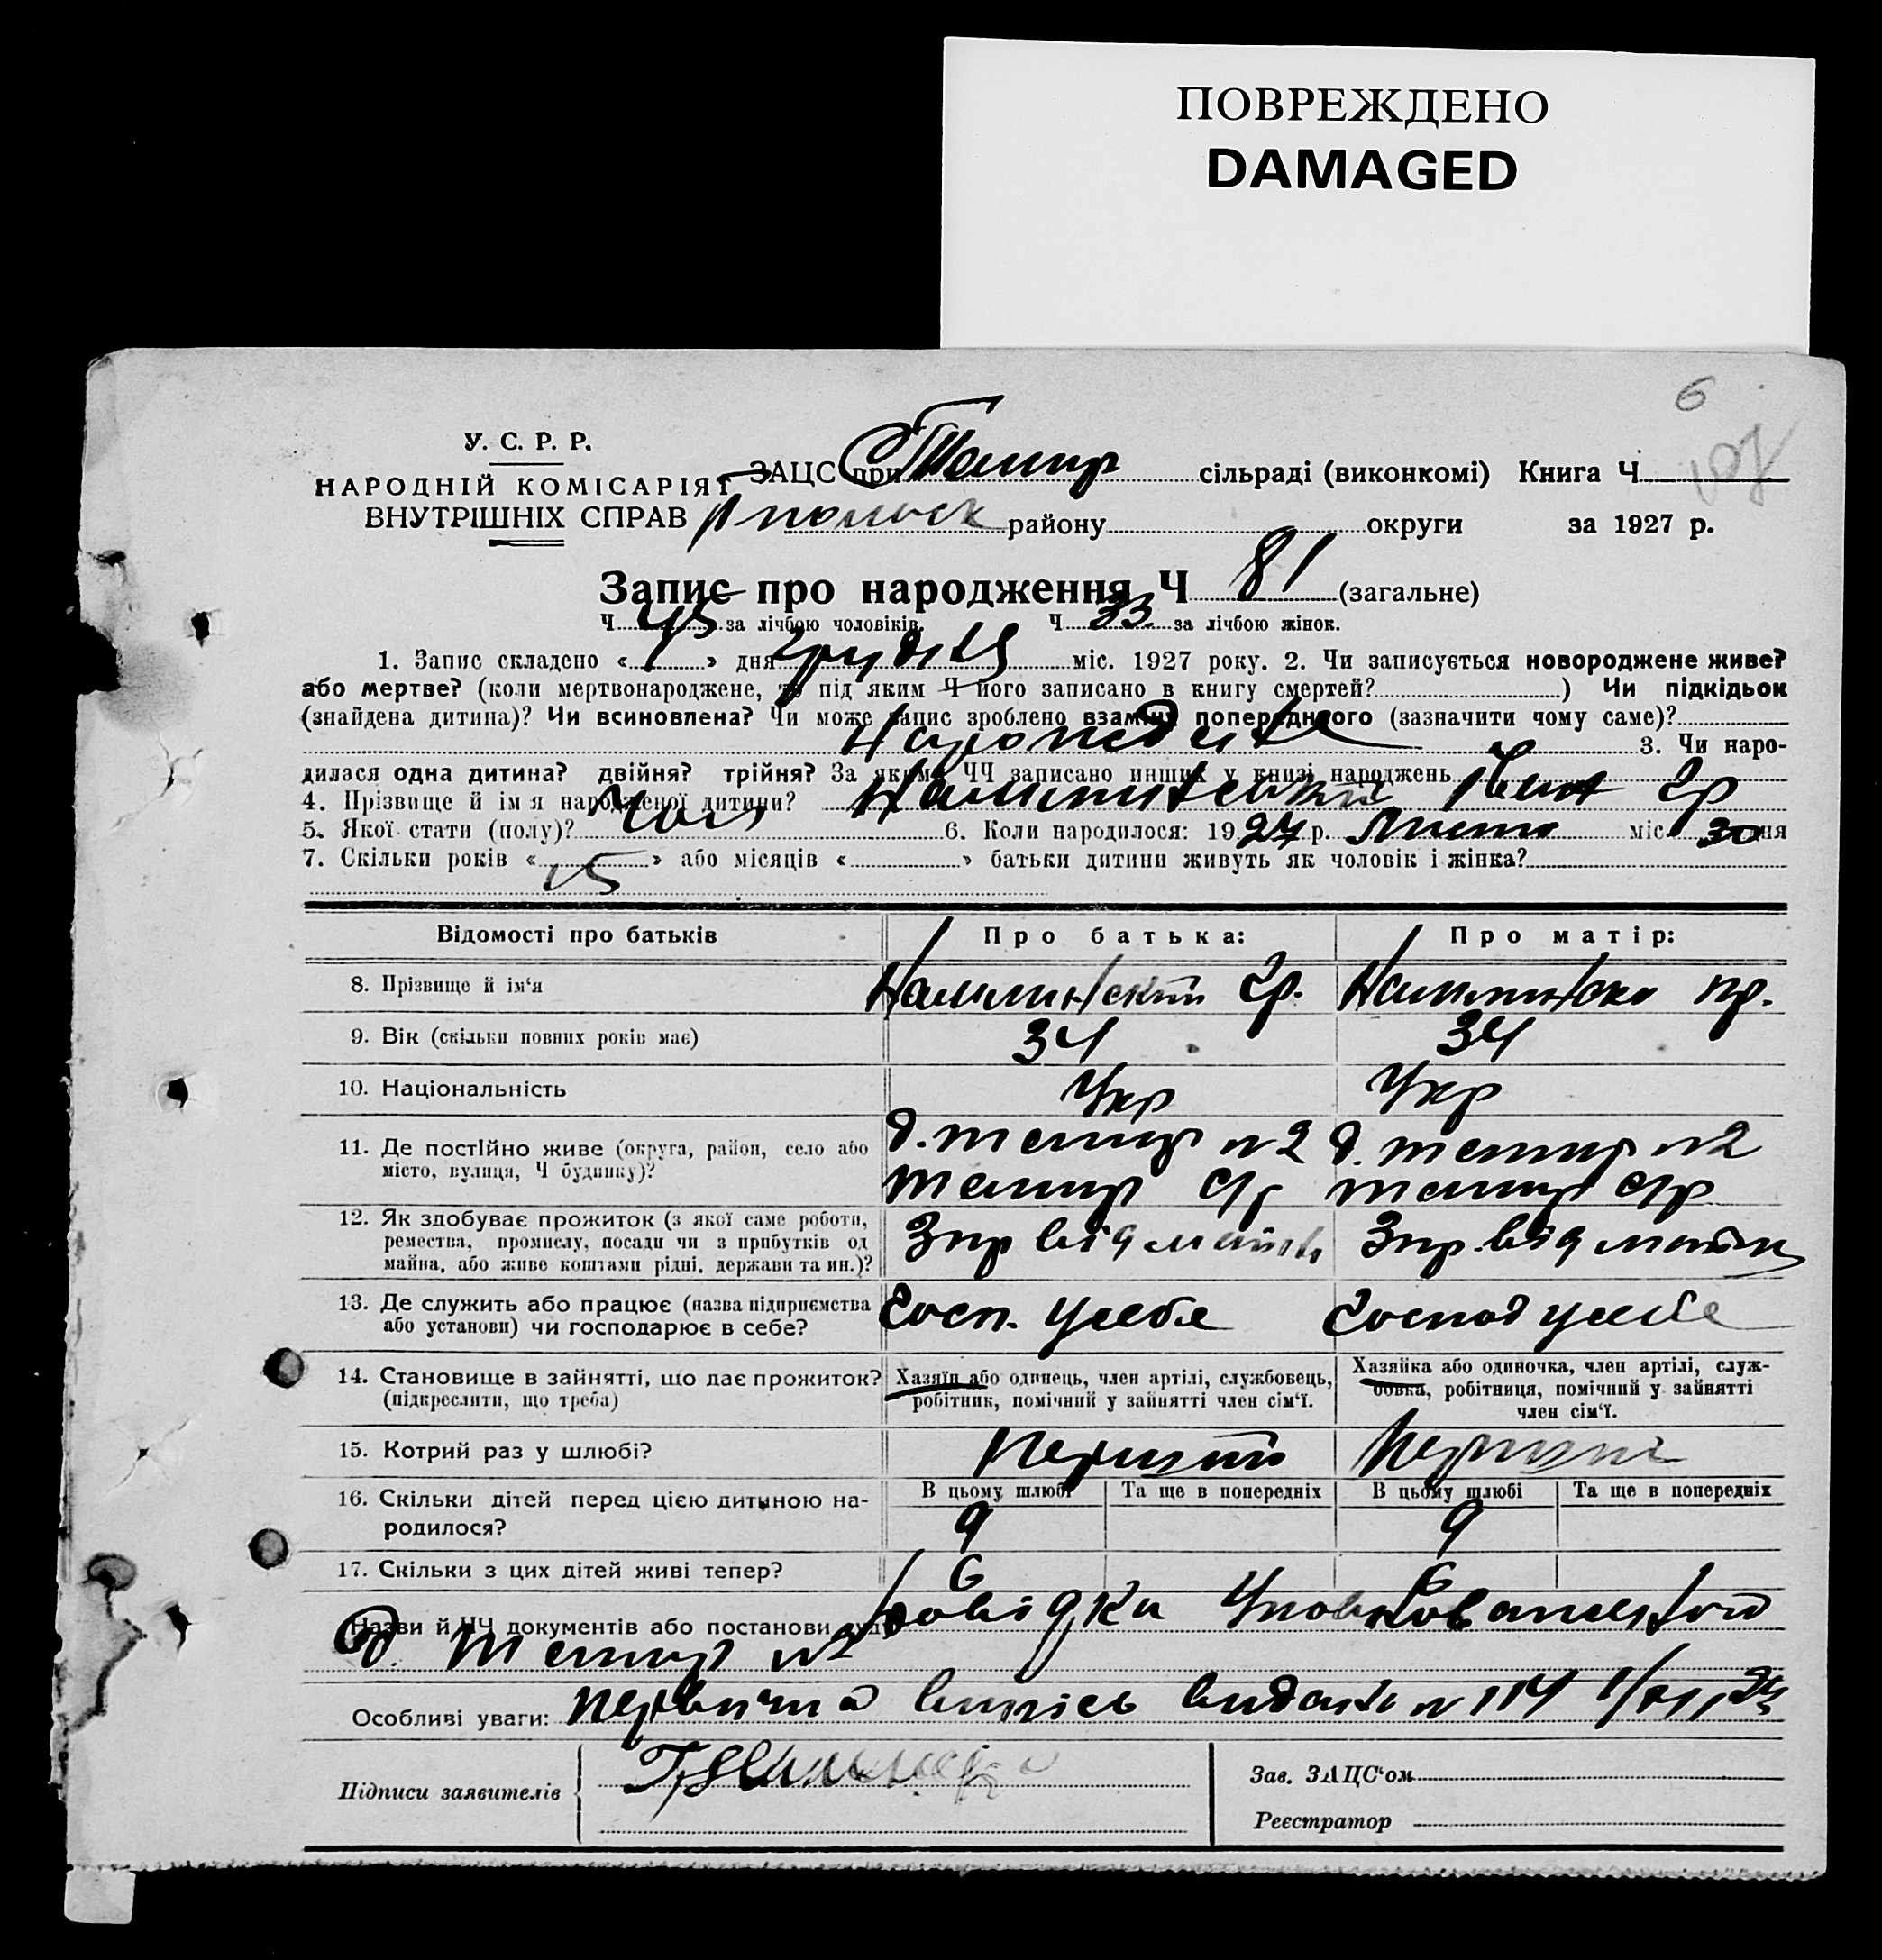 ПОВРЕЖДЕНО
DAMAGED
6
У. С. Р. Р.
НАРОДНІЙ КОМІСАРІЯТ
ВНУТРІШНІХ СПРАВ
ЗАЦС при сільраді (виконкомі) Книга Ч
району округи за 1927 р.
Запис про народження Ч 81 (загальне)
Ч 45 за лічбою чоловіків. Ч 33 за лічбою жінок.
1. Запис складено « 1 » дня грудня міс. 1927 року. 2. Чи записується новороджене живе?
або мертве? (коли мертвонароджене, то під яким Ч його записано в книгу смертей? ) Чи підкідьок
(знайдена дитина)? Чи всиновлена? Чи може запис зроблено взамін попереднього (зазначити чому саме)?
3. Чи наро-
дилася одна дитина? двійня? трійня? За якими ЧЧ записано инших у книзі народжень
4. Прізвище й ім'я народженої дитини? Гр
5. Якої стати (полу)? Чол 6. Коли народилося: 1927 р. Листо міс. 30 дня
7. Скільки років « 15 » або місяців « » батьки дитини живуть як чоловік і жінка?
Відомості про батьків Про батька: Про матір:
8. Прізвище й ім'я Гр. пр.
9. Вік (скільки повних років має) 34 34
10. Національність Укр Укр
11. Де постійно живе (округа, район, село або
місто, вулиця, Ч будинку)? д. темир n2 д. темир n2
темир с/р темир с/р
12. Як здобуває прожиток (з якої саме роботи,
ремества, промислу, посади чи з прибутків од
майна, або живе коштами рідні, держави та ин.)?
13. Де служить або працює (назва підприємства
або установи) чи господарює в себе? Госп. усебе Господ усебе
14. Становище в зайнятті, що дає прожиток?
(підкреслити, що треба)
Хазяїн або одинець, член артілі, службовець,
робітник, помічний у зайнятті член сім'ї.
Хазяйка або одиночка, член артілі, служ-
бовка, робітниця, помічний у зайнятті
член сім'ї.
15. Котрий раз у шлюбі? Перший Перший
16. Скільки дітей перед цією дитиною на-
родилося?
В цьому шлюбі Та ще в попередніх В цьому шлюбі Та ще в попередніх
9 9
17. Скільки з цих дітей живі тепер? 6 6
Назви й ЧЧ документів або постанови суду Довідка Уповноваженого
д. Темир n2
Особливі уваги: Первична випись видана n 114 1/XII 27
Підписи заявителів
Зав. ЗАЦС'ом
Реєстратор